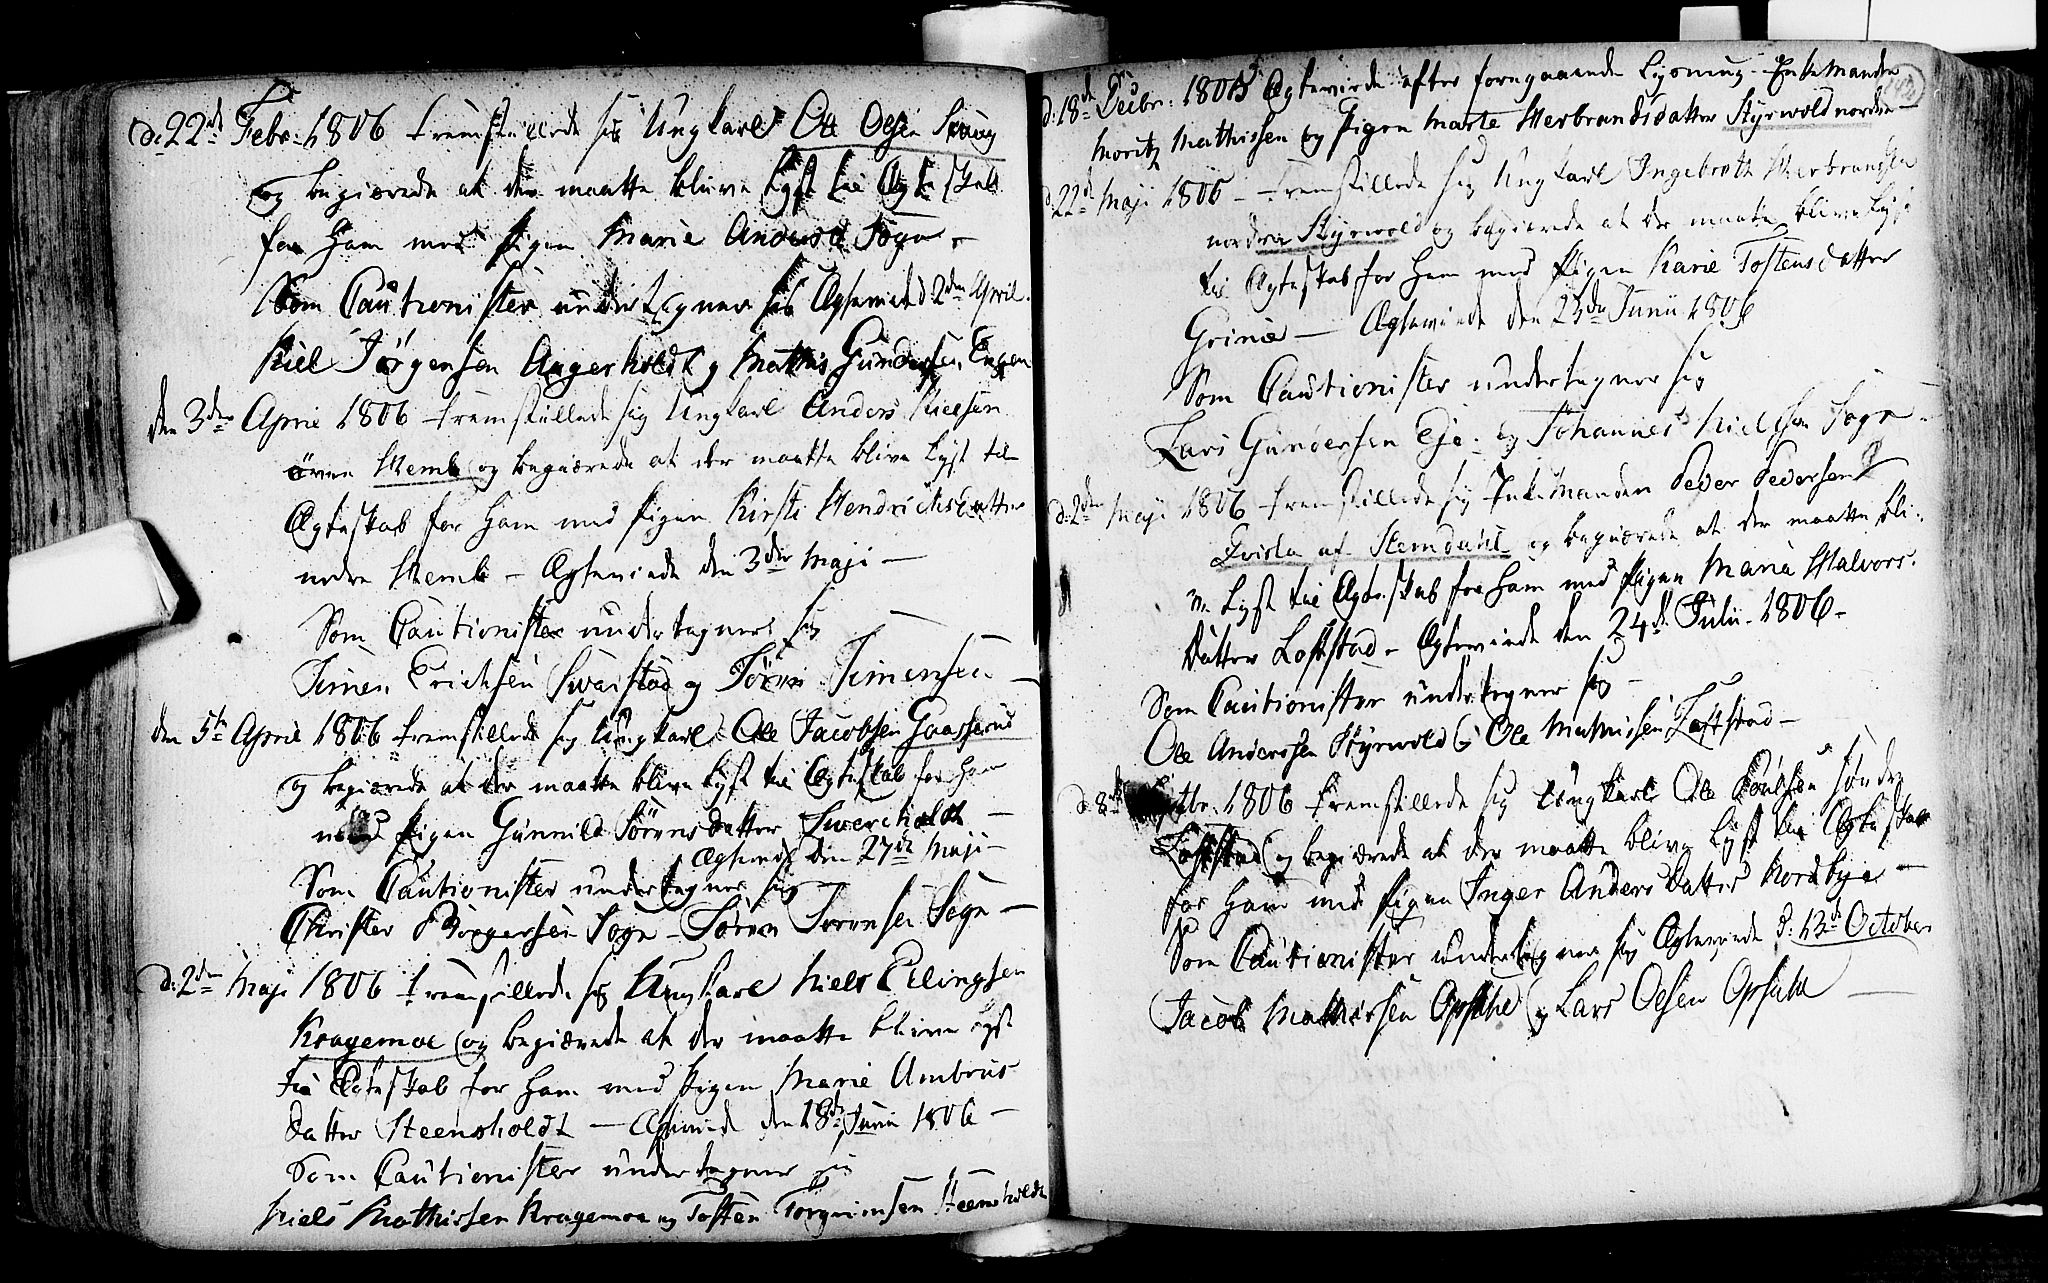 d: 22de Febr: 1806 fremstillede sig Ungkarl Ole Olsen Skaug
og begiærede at der maatte blive lyst til Ægteskab
for ham med Pigen Marie Andersd Sogn –
Som Cautionister undertegner sig Ægteviet d 2den April.
Niel Jörgensen Aagerholdt og Mathis Gundersen Engen
den 3die April 1806 fremstillede sig Ungkarl Anders Nielsen
övre Hemb og begiærede at der maatte blive lyst til
Ægteskab for ham med Pigen Kirsti Hendrichsdatter
nedre Hemb – Ægteviede den 3die Maji –
Som Cautionister undertegner sig –
Simen Erichsen Svarstad og Sören Simensen –
den 5te April 1806 fremstillede sig Ungkarl Ole Jacobsen Gaasserud
og begiærede at der maatte blive lyst til Ægteskab for ham
med Pigen Gunnild Sörensdatter Sverikoldt –
Ægteviede den 27de Maji –
Som Cautionister undertegner sig
Christer Börgersen Sogn – Sören Sörensen Sogn –
d: 2den Maji 1806 fremstillede sig Ungkarl Niels Ellingsen
Kragemoe og begiærede at der maatte blive lyst
til Ægteskab for ham med Pigen Marie Ambrus
datter Steensholdt – Ægteviede den 18de Junii 1806 –
Som Cautionister undertegner sig
Niels Mathissen Kragemoe og Tosten Torgrimsen Steensholdt
142
d: 18de Decbr: 1805 Ægteviede efter foregaaende Lysning Enkemanden
Moritz Mathissen og Pigen Marte Herbrandsdatter Styrvold nordre –
d: 22de Maji 1806 – fremstillede sig Ungkarl Ingebreth Herbrandsen
nordre Styrvold og begiærede at der maatte blive lyst
til Ægteskab for ham med Pigen Karie Tostensdatter
Grinie – Ægteviede den 23de Junii 1806
Som Cautionister undertegner sig
Lars Gundersen Eje: og Johannes Nielsen Sogn –
d: 2den Maji 1806 fremstillede sig Enkemanden Peder Pedersen
af Hemdahl og begiærede at der maatte bli-
ve lyst til Ægteskab for ham med Pigen Maria Halvors.
Datter Loftstad – Ægteviede den 24de Julii – 1806 –
Som Cautionister undertegner sig –
Ole Anderssen Styrvold og Ole Mathisen Loftstad –
d: 8de 1806 fremstillede sig Ungkarl Ole Poulsen söndre
Loftstad og begiærede at der maatte blive lyst til Ægteskab
for ham med Pigen Inger Anders Datter Nordbye –
Som Cautionister undertegner sig Ægteviede d: 13de October
Jacob Mathisen Opsahl og Lars Olsen Opsahl –